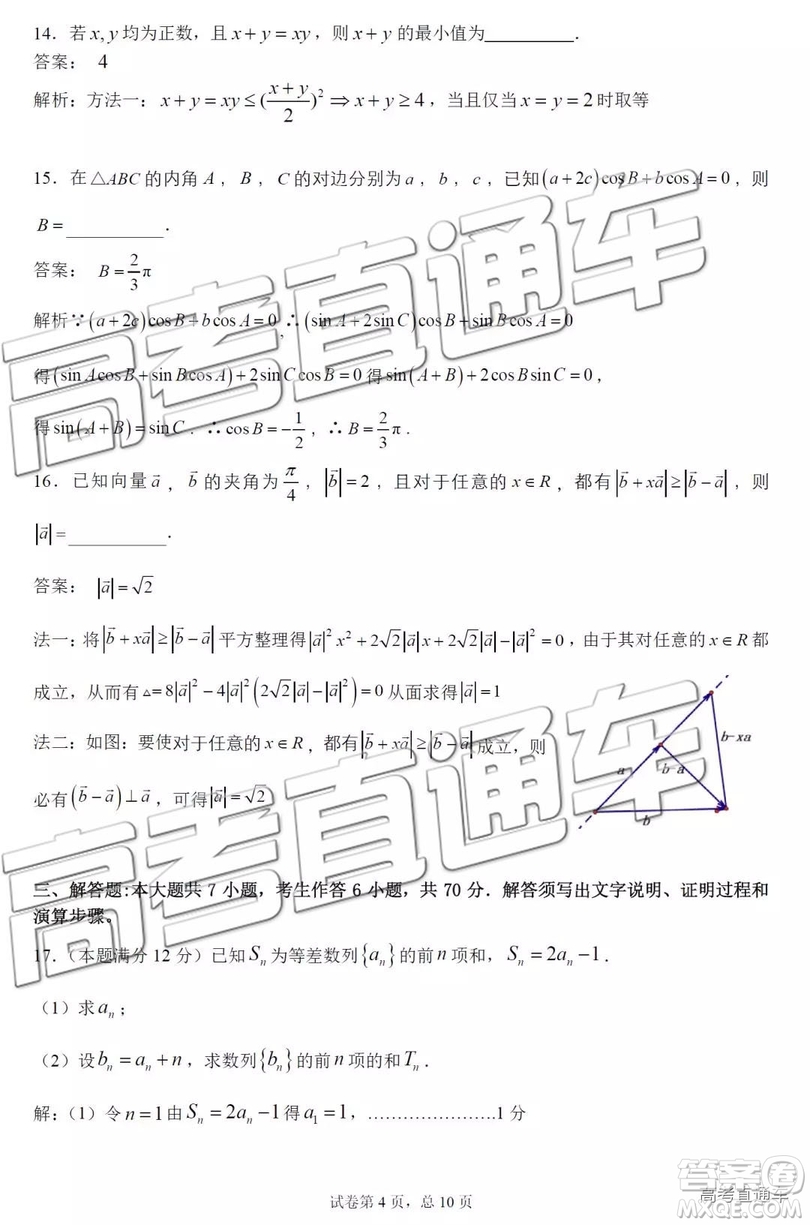 14．若 x, y 均为正数，且 x + y = xy，则 x + y 的最小值为__________．
答案： 4
解析：方法一：x + y = xy ≤ (\frac{x+y}{2})^2 ⇒ x + y ≥ 4，当且仅当 x = y = 2 时取等
15．在△ABC 的内角 A，B，C 的对边分别为 a，b，c，已知 (a+2c)cos B + b cos A = 0，则
B = ___________．
答案： B = \frac{2}{3}π
解析∵ (a+2c)cos B + b cos A = 0，∴ (sin A + 2sin C)cos B + sin B cos A = 0
得 (sin A cos B + sin B cos A) + 2sin C cos B = 0 得 sin(A+B) + 2cos B sin C = 0，
得 sin(A+B) = sin C．∴ cos B = -\frac{1}{2}，∴ B = \frac{2}{3}π．
16．已知向量 \vec{a}，\vec{b} 的夹角为 \frac{π}{4}，|\vec{b}| = 2，且对于任意的 x ∈ R，都有 |\vec{b} + x\vec{a}| ≥ |\vec{b} - \vec{a}|，则
|\vec{a}| = ___________．
答案： |\vec{a}| = √2
法一：将 |\vec{b} + x\vec{a}| ≥ |\vec{b} - \vec{a}| 平方整理得 |\vec{a}|^2 x^2 + 2√2|\vec{a}| x + 2√2|\vec{a}| - |\vec{a}|^2 = 0，由于其对任意的 x ∈ R 都
成立，从而有 △ = 8|\vec{a}|^2 - 4|\vec{a}|^2 (2√2|\vec{a}| - |\vec{a}|^2) = 0 从面求得 |\vec{a}| = 1
法二：如图：要使对于任意的 x ∈ R，都有 |\vec{b} + x\vec{a}| ≥ |\vec{b} - \vec{a}| 成立，则
必有 (\vec{b} - \vec{a}) ⊥ \vec{a}，可得 |\vec{a}| = √2
b-xa
a
b-a
b
三、解答题:本大题共 7 小题，考生作答 6 小题，共 70 分．解答须写出文字说明、证明过程和
演算步骤。
17．（本题满分 12 分）已知 S_n 为等差数列 {a_n} 的前 n 项和，S_n = 2a_n - 1．
（1）求 a_n；
（2）设 b_n = a_n + n，求数列 {b_n} 的前 n 项的和 T_n．
解：（1）令 n = 1 由 S_n = 2a_n - 1 得 a_1 = 1，…………………1 分
试卷第 4 页，总 10 页
高考直通车
高考直通车
答案圈
高考直通车
MXQE.COM